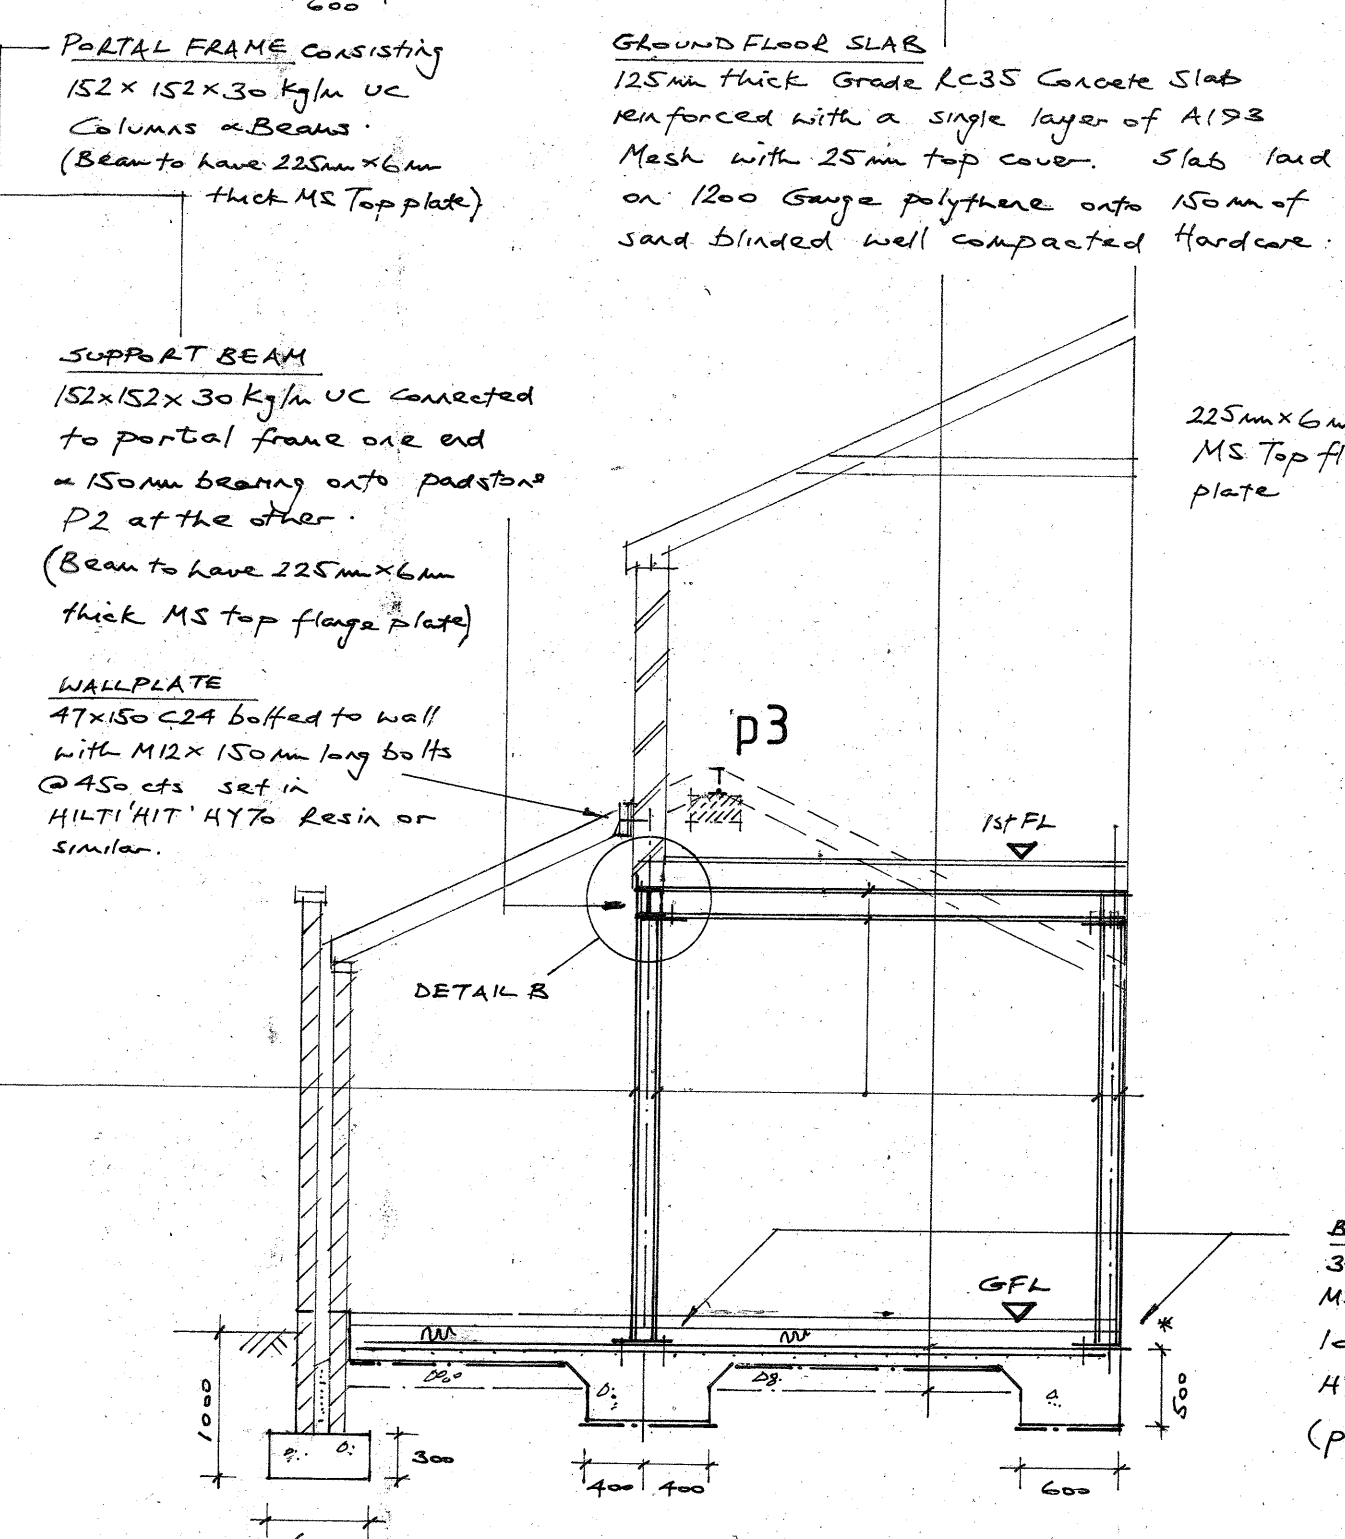 600
PORTAL FRAME consisting
152 x 152 x 30 kg/m UC
Columns & Beams.
(Beam to have 225mm x 6mm
thick MS Top plate)
GROUND FLOOR SLAB
125mm thick Grade RC35 Concete Slab
reinforced with a single layer of A193
Mesh with 25mm top cover. Slab laid
on 1200 Gauge polythene onto 150mm of
sand blinded well compacted Hardcore.
SUPPORT BEAM
152x152x 30 kg/m UC connected
to portal frame one end
& 150mm bearing onto padstone
P2 at the other.
(Beam to have 225mm x 6mm
thick MS top flange plate)
225mm x 6m
MS Top fl
plate
WALLPLATE
47x150 C24 bolted to wall
with M12 x 150mm long bolts
@ 450 cts set in
HILTI 'HIT' HY70 Resin or
similar.
p3
1st FL
DETAIL B
GFL
B
3
M
10
H
(p
*
1000
300
400 400
600
500